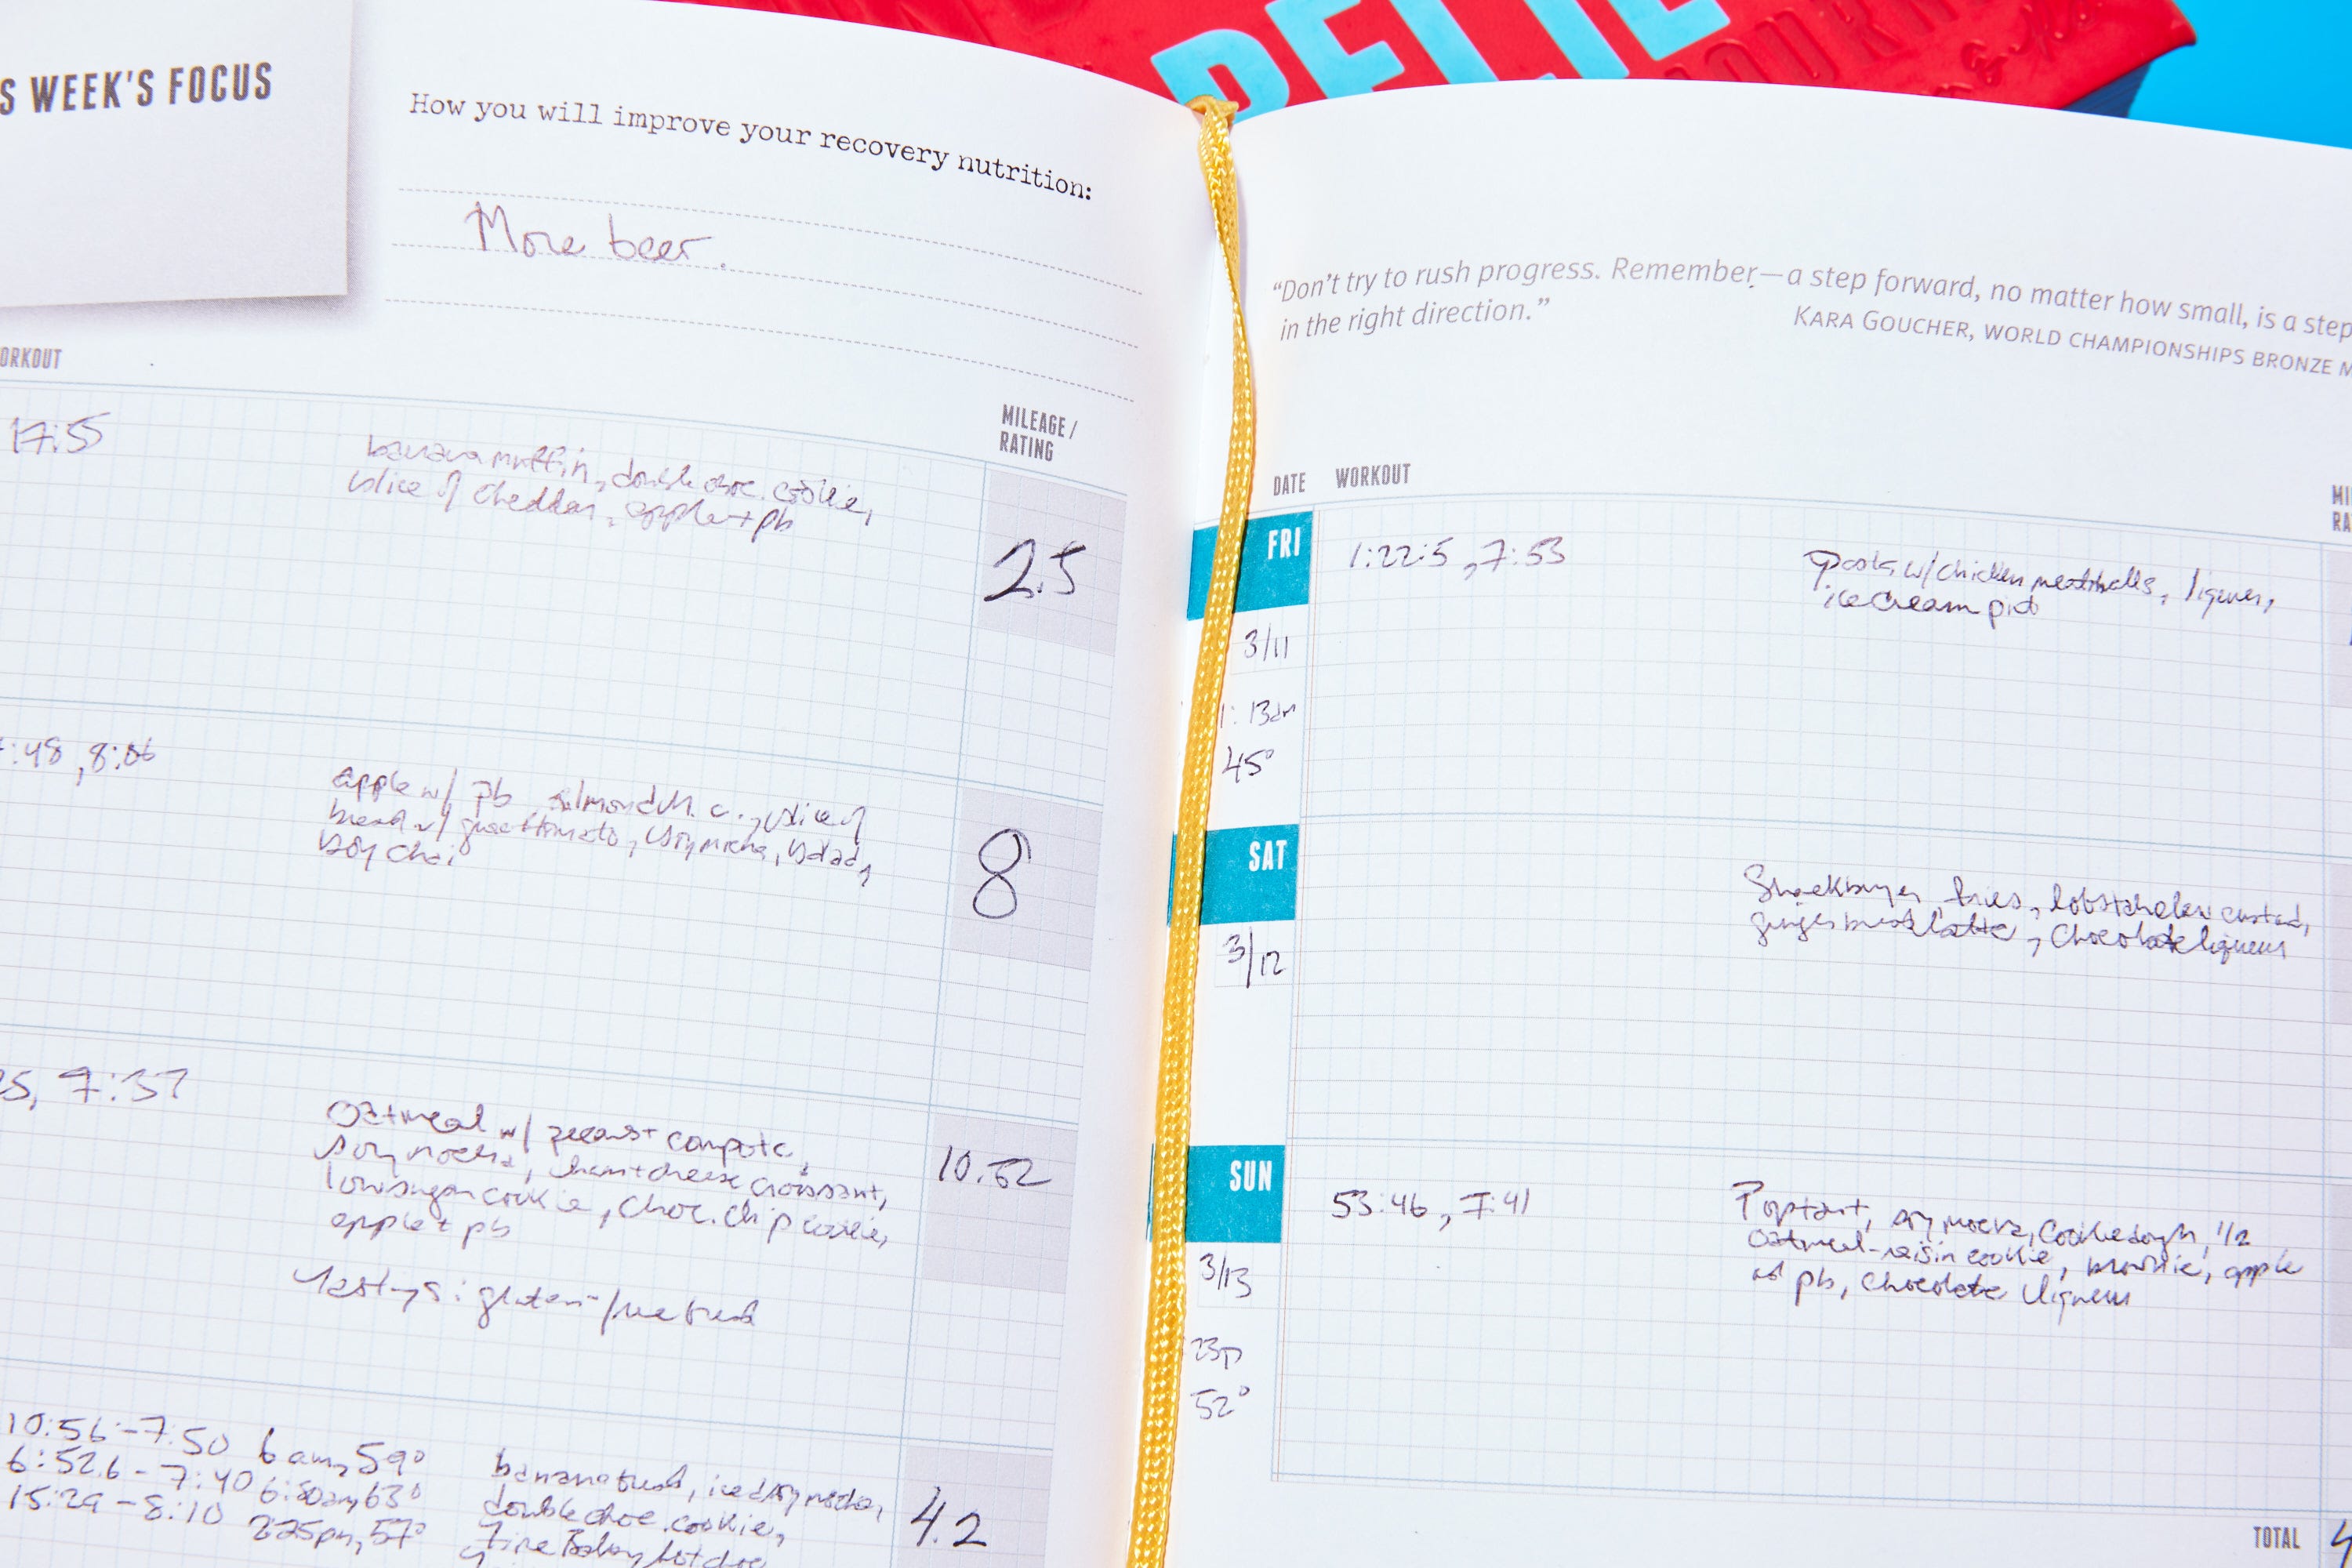 S WEEK'S FOCUS
How you will improve your recovery nutrition:
More beer.
ORKOUT
MILEAGE/
RATING
17:55
banana muffin, double choc. cookie,
slice of cheddar, apple + pb
2.5
:48, 8:06
apple w/ pb, slice of
bread w/ soy mocha, salad,
soy chai
8
5, 7:37
Oatmeal w/ compote,
soy mocha, ham + cheese croissant,
low sugar cookie, choc. chip cookie,
apple + pb
10.52
10:56 - 7:50 6am, 59°
6:52.6 - 7:40 6:50am, 63°
15:29 - 8:10 2:25pm, 57°
banana bread, iced soy mocha,
double choc. cookie,
4.2
BELIE
JOURN
"Don't try to rush progress. Remember—a step forward, no matter how small, is a step
in the right direction."
KARA GOUCHER, WORLD CHAMPIONSHIPS BRONZE M
DATE WORKOUT
MI
RA
FRI
1:22:5, 7:53
Pasta w/ chicken meatballs, liqueur,
ice cream
3/11
1:13am
45°
SAT
fries, custard,
gingerbread latte, Chocolate liqueur
3/12
SUN
53:46, 7:41
Poptart, soy mocha, cookie dough, 1/2
oatmeal-raisin cookie, brownie, apple
pb, chocolate liqueur
3/13
23p
52°
TOTAL
4